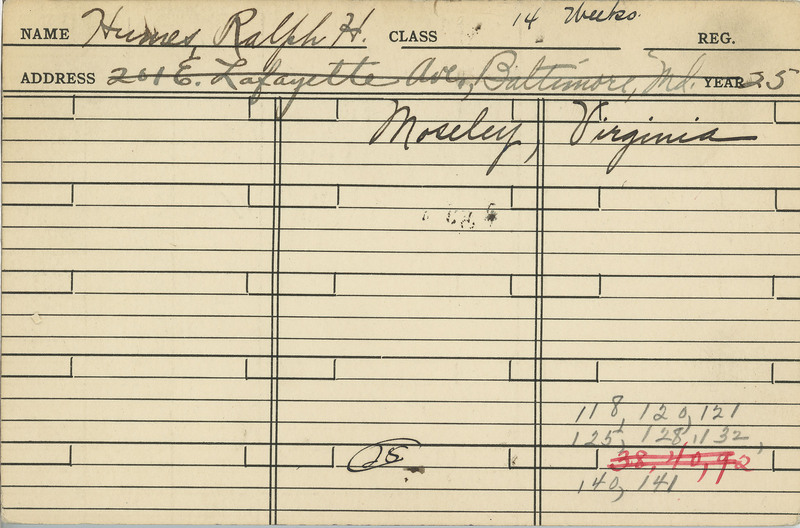 NAME Humes, Ralph H. CLASS 14 Weeks. REG.
ADDRESS 201 E. Lafayette Ave., Baltimore, Md. YEAR 35
Moseley, Virginia
118, 120, 121
125, 128, 132,
25 38, 40, 92
140, 141